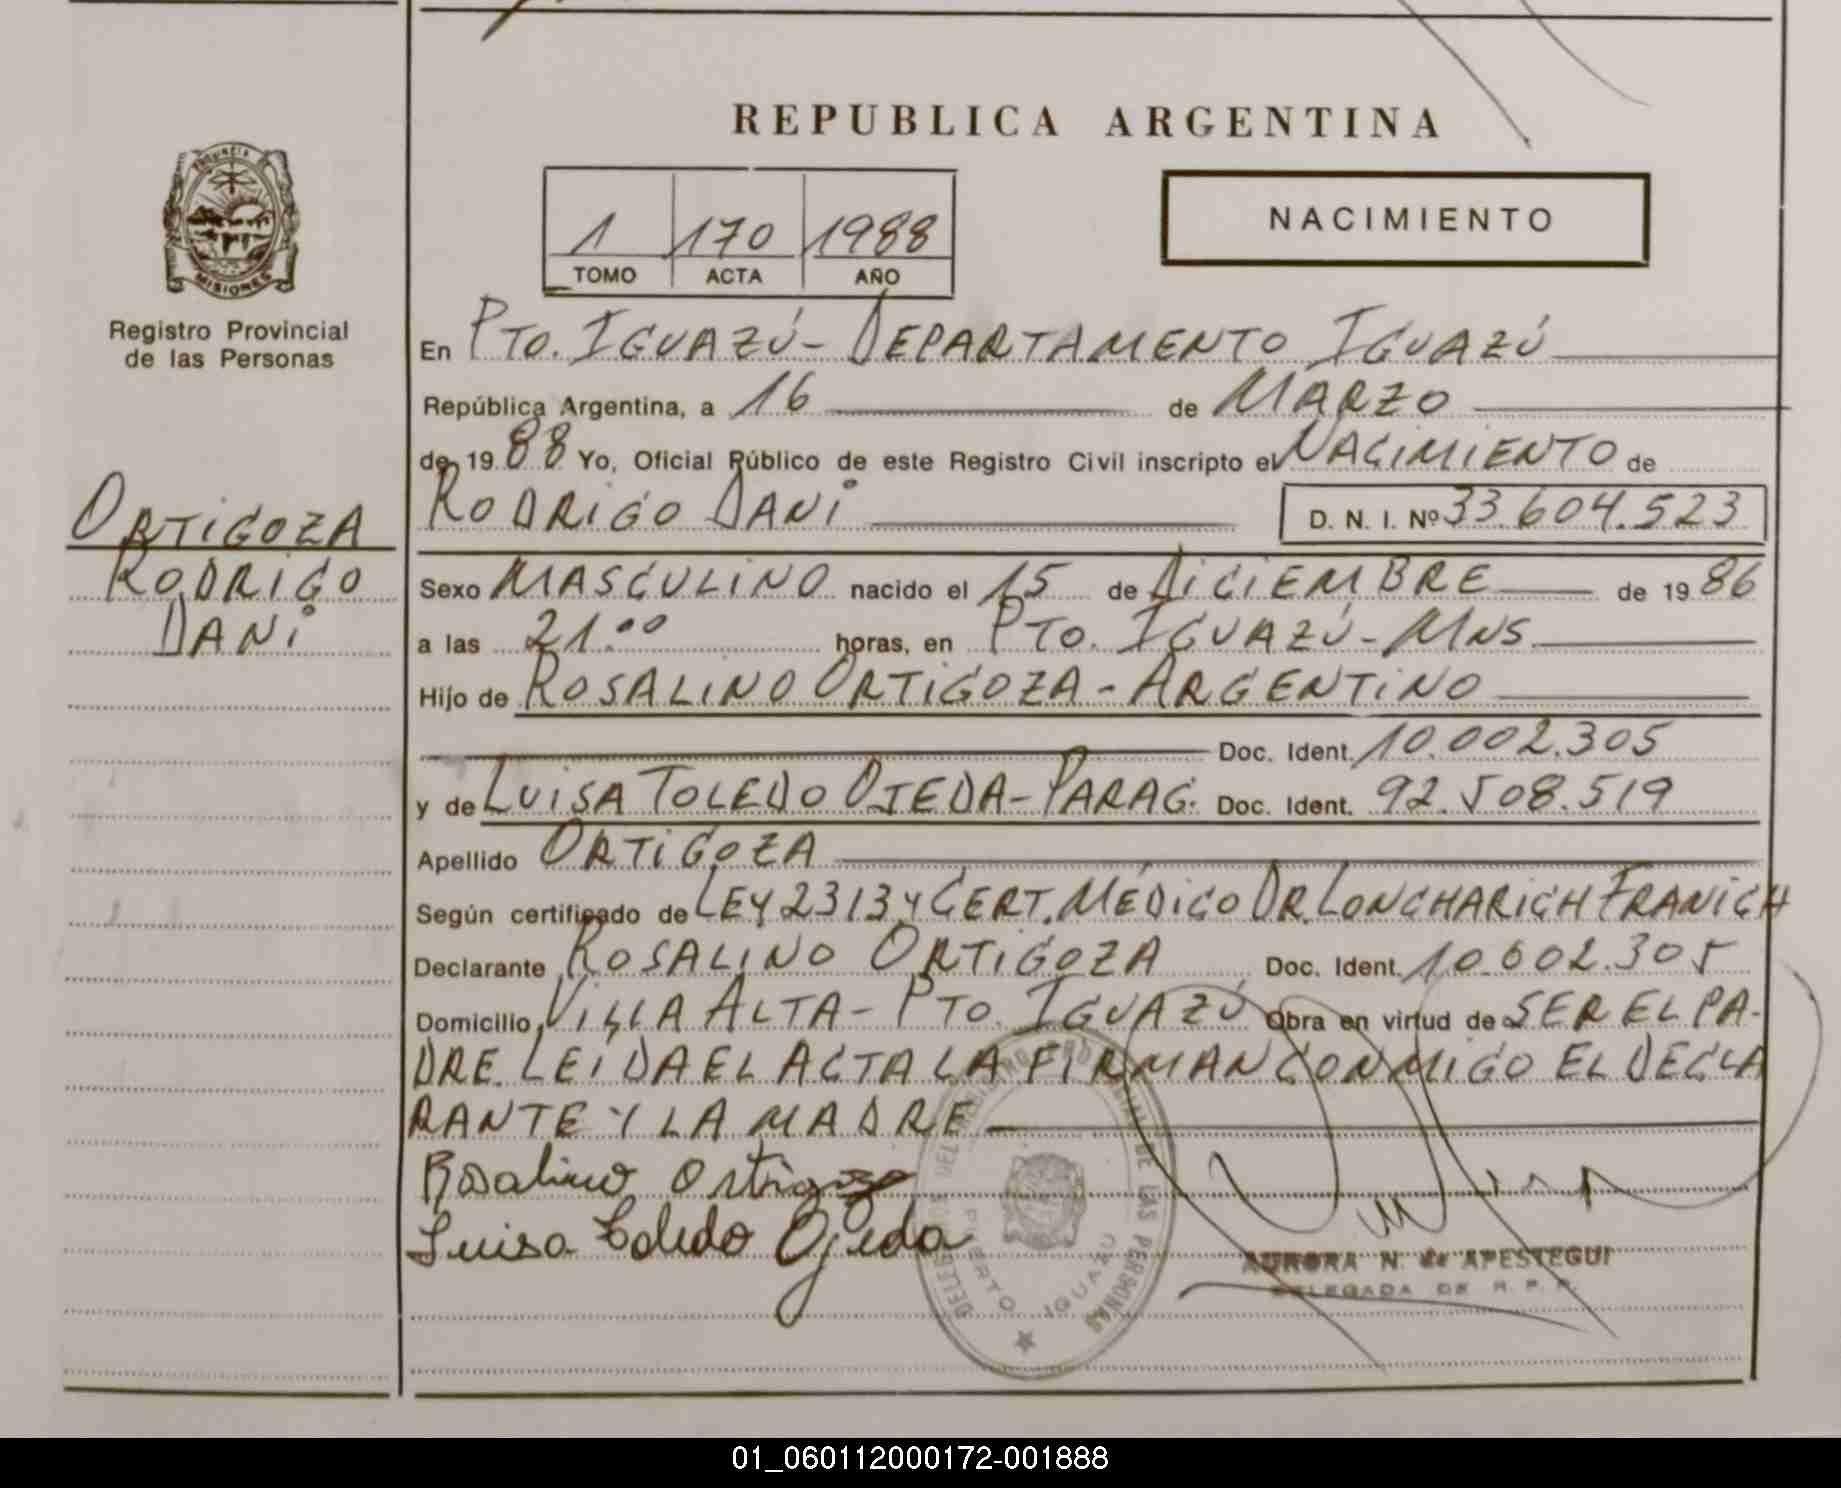 REPUBLICA ARGENTINA
PROVINCIA DE
MISIONES
Registro Provincial
de las Personas
1 170 1988
TOMO ACTA AÑO
NACIMIENTO
En PTO. IGUAZÚ - DEPARTAMENTO IGUAZÚ
República Argentina, a 16 de MARZO
de 1988 Yo, Oficial Público de este Registro Civil inscripto el NACIMIENTO de
RODRIGO DANI D. N. I. Nº 33.604.523
ORTIGOZA
RODRIGO
DANI
Sexo MASCULINO nacido el 15 de DICIEMBRE de 1986
a las 21.00 horas, en PTO. IGUAZÚ - MNS
Hijo de ROSALINO ORTIGOZA - ARGENTINO
Doc. Ident. 10.002.305
y de LUISA TOLEDO OJEDA - PARAG. Doc. Ident. 92.508.519
Apellido ORTIGOZA
Según certificado de LEY 23134 CERT. MÉDICO DR. LONCHARICH FRANICH
Declarante ROSALINO ORTIGOZA Doc. Ident. 10.602.305
Domicilio VILLA ALTA - PTO. IGUAZÚ Obra en virtud de SER EL PA-
DRE. LEIDA EL ACTA LA FIRMAN CONMIGO EL DECLA
RANTE Y LA MADRE
Rosalino Ortigoza
Luisa Toledo Ojeda
DEL REGISTRO PROVINCIAL DE LAS PERSONAS
PUERTO IGUAZU
AURORA N. de APESTEGUI
DELEGADA DE R. P. P.
01_060112000172-001888